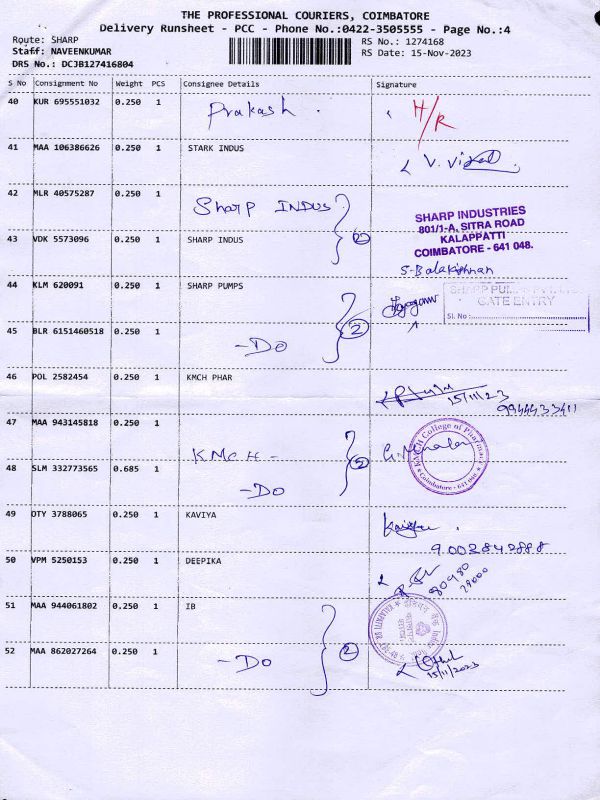 THE PROFESSIONAL COURIERS, COIMBATORE
Delivery Runsheet - PCC - Phone No.:0422-3505555 - Page No.:4
Route: SHARP
RS No.: 1274168
Staff: NAVEENKUMAR
RS Date: 15-Nov-2023
DRS No.: DCJB127416804
S No Consignment No Weight PCS Consignee Details Signature
40 KUR 695551032 0.250 1 Prakash H/R
41 MAA 106386626 0.250 1 STARK INDUS V.
42 MLR 40575287 0.250 1 Sharp INDUS
SHARP INDUSTRIES
801/1-A, SITRA ROAD
KALAPPATTI
COIMBATORE - 641 048.
43 VDK 5573096 0.250 1 SHARP INDUS 2
S. Balakishnan
44 KLM 620091 0.250 1 SHARP PUMPS
SHARP PUMPS
GATE ENTRY
Sl. No :
45 BLR 6151460518 0.250 1 - DO 2
46 POL 2582454 0.250 1 KMCH PHAR
15/11/23
9944433411
47 MAA 943145818 0.250 1 KMCH -
KMCH College of Pharmacy
Coimbatore - 641 048.
48 SLM 332773565 0.685 1 - DO 2
49 OTY 3788065 0.250 1 KAVIYA
9002842888
50 VPM 5250153 0.250 1 DEEPIKA
80980
29000
51 MAA 944061802 0.250 1 IB
52 MAA 862027264 0.250 1 - DO 2
15/11/2023